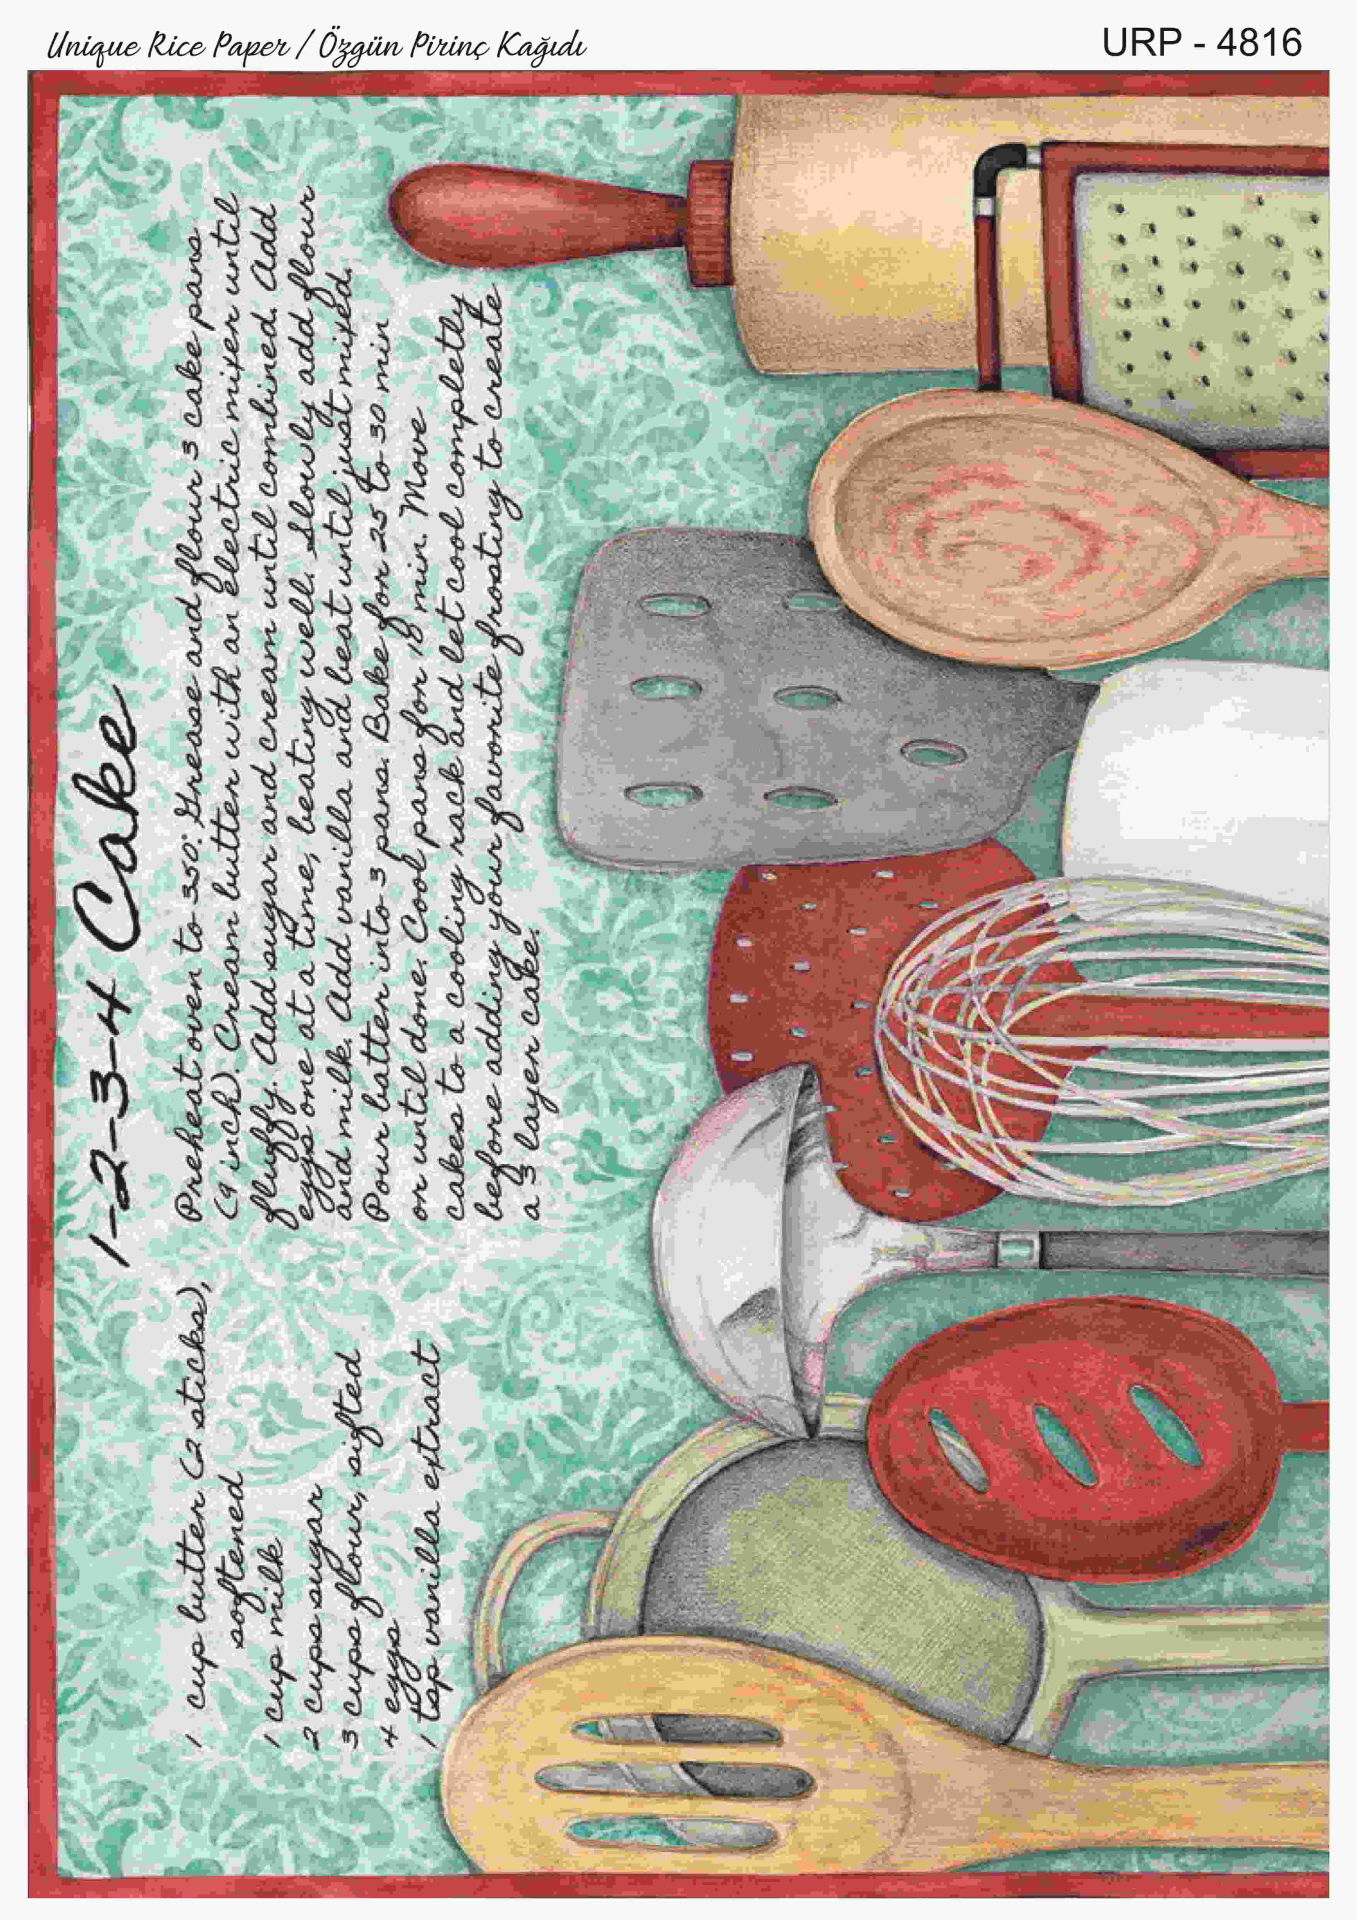 Unique Rice Paper / Özgün Pirinç Kağıdı
URP - 4816
1-2-3-4 Cake
1 cup butter (2 sticks),
softened
1 cup milk
2 cups sugar
3 cups flour, sifted
4 eggs
1 tsp vanilla extract
Preheat oven to 350°. Grease and flour 3 cake pans
(9 inch). Cream butter with an electric mixer until
fluffy. Add sugar and cream until combined. Add
eggs one at a time, beating well. Slowly add flour
and milk. Add vanilla and beat until just mixed.
Pour batter into 3 pans. Bake for 25 to 30 min
or until done. Cool pans for 15 min. Move
cakes to a cooling rack and let cool completely
before adding your favorite frosting to create
a 3 layer cake.